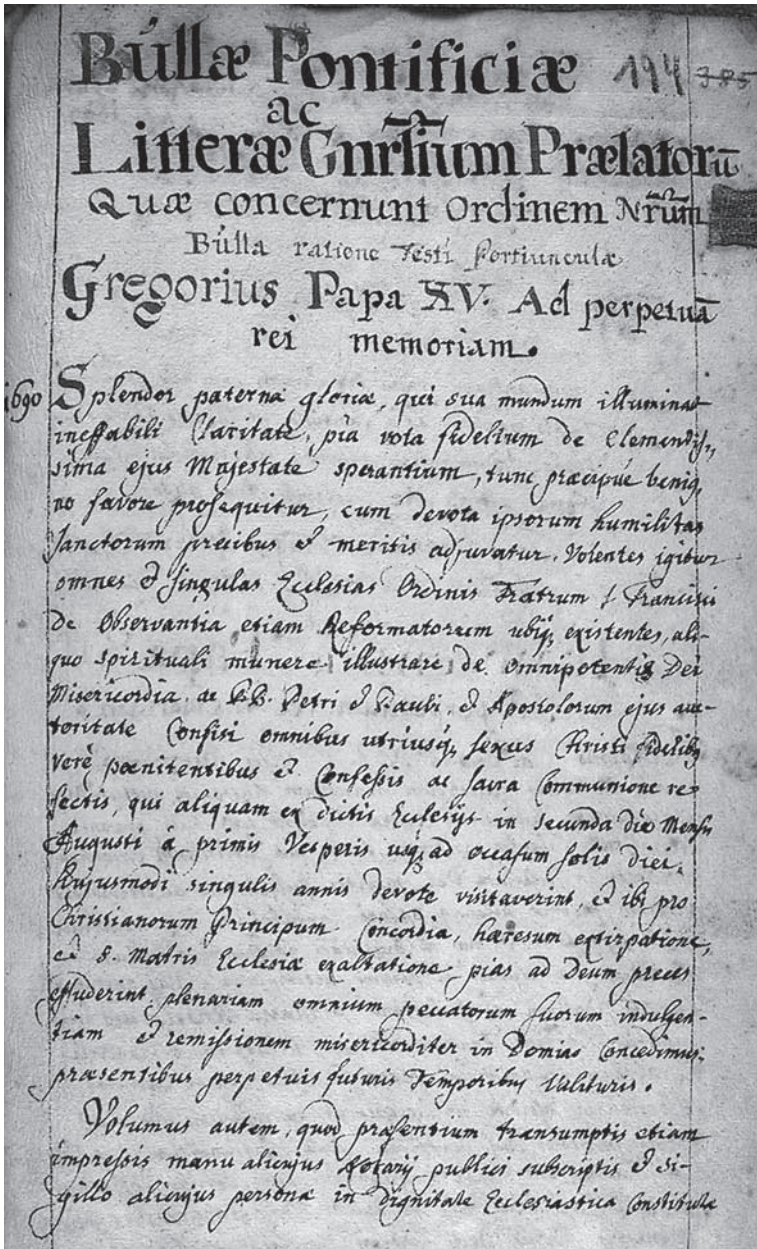 Bullæ Pontificiæ 194 385
ac
Litteræ Gnrlium Prælatorū
Quæ concernunt Ordinem Nrūm
Bulla ratione Festi Portiunculæ
Gregorius Papa XV. Ad perpetuā
rei memoriam.
1690 Splendor paternæ gloriæ, qui sua mundum illuminat
ineffabili Claritate, pia vota fidelium de Clementis„
sima ejus Majestate sperantium, tunc præcipue benig„
no favore prosequitur, cum devota ipsorum humilitas
Sanctorum precibus et meritis adjuvatur. Volentes igitur
omnes et singulas Ecclesias Ordinis Fratrum S. Francisci
de Observantia etiam Reformatorum ubiq, existentes, ali-
quo spirituali munere illustrare de omnipotentis Dei
Misericordia, ac B.B. Petri et Pauli, et Apostolorum ejus auc-
toritate Confisi omnibus utriusq, sexus Christi fidelibq
verè pœnitentibus et Confessis ac sacra Communione re-
fectis, qui aliquam ex dictis Ecclesijs in secunda die Mensis
Augusti à primis Vesperis usq, ad occasum solis diei
hujusmodi singulis annis devote visitaverint, et ibi pro
Christianorum Principum Concordia, hæresum extirpatione,
et S. Matris Ecclesiæ exaltatione pias ad Deum preces
effuderint, plenariam omnium peccatorum suorum indulgen-
tiam et remissionem misericorditer in Domino Concedimus,
præsentibus perpetuis futuris Temporibus Valituris.
Volumus autem, quod præsentium transumptis etiam
impressis manu alicujus Notarij publici subscriptis et si-
gillo alicujus personæ in dignitate Ecclesiastica Constitutæ